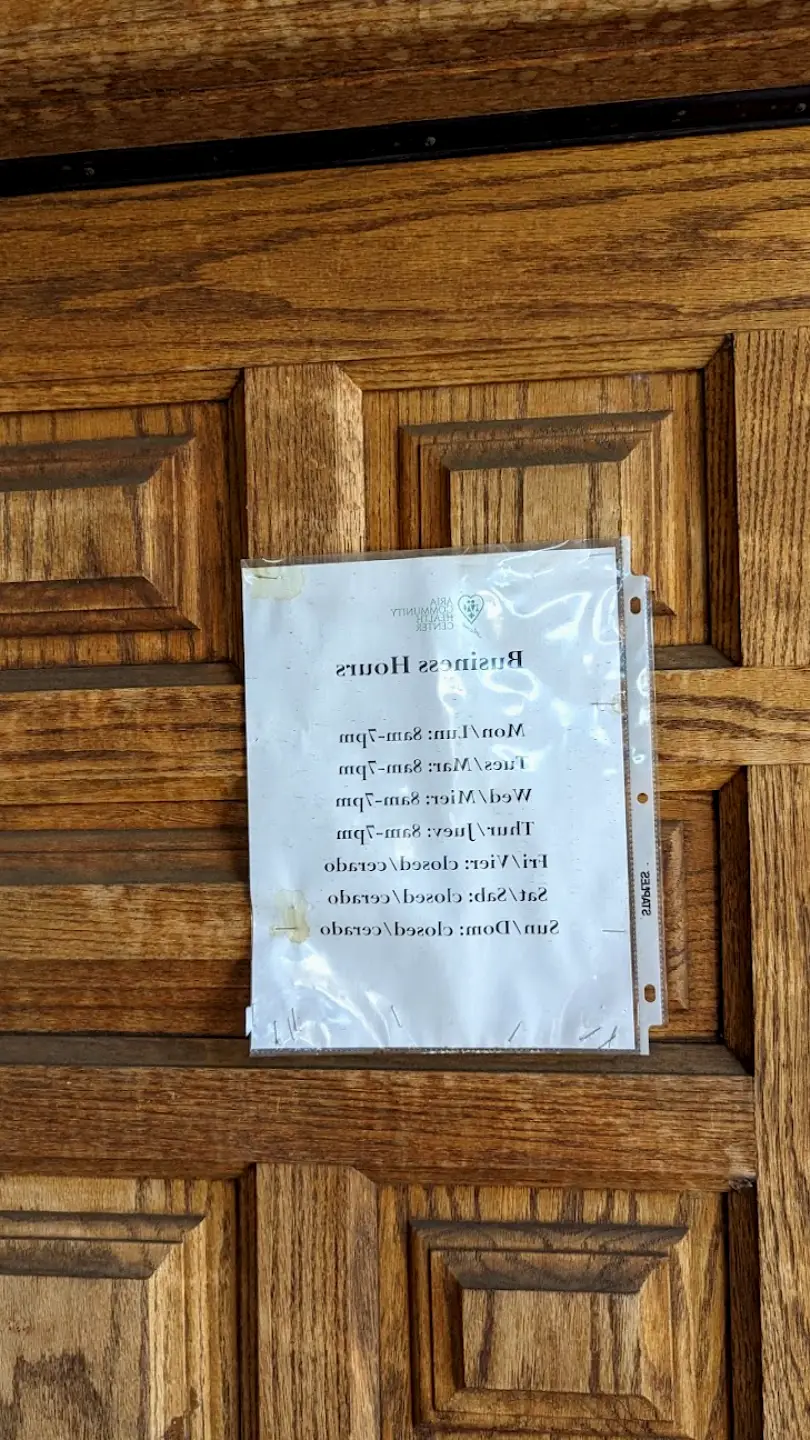 ARIA
COMMUNITY
HEALTH
CENTER
Business Hours
Mon/Lun: 8am-7pm
Tues/Mar: 8am-7pm
Wed/Mier: 8am-7pm
Thur/Juev: 8am-7pm
Fri/Vier: closed/cerado
Sat/Sab: closed/cerado
Sun/Dom: closed/cerado
STAPLES